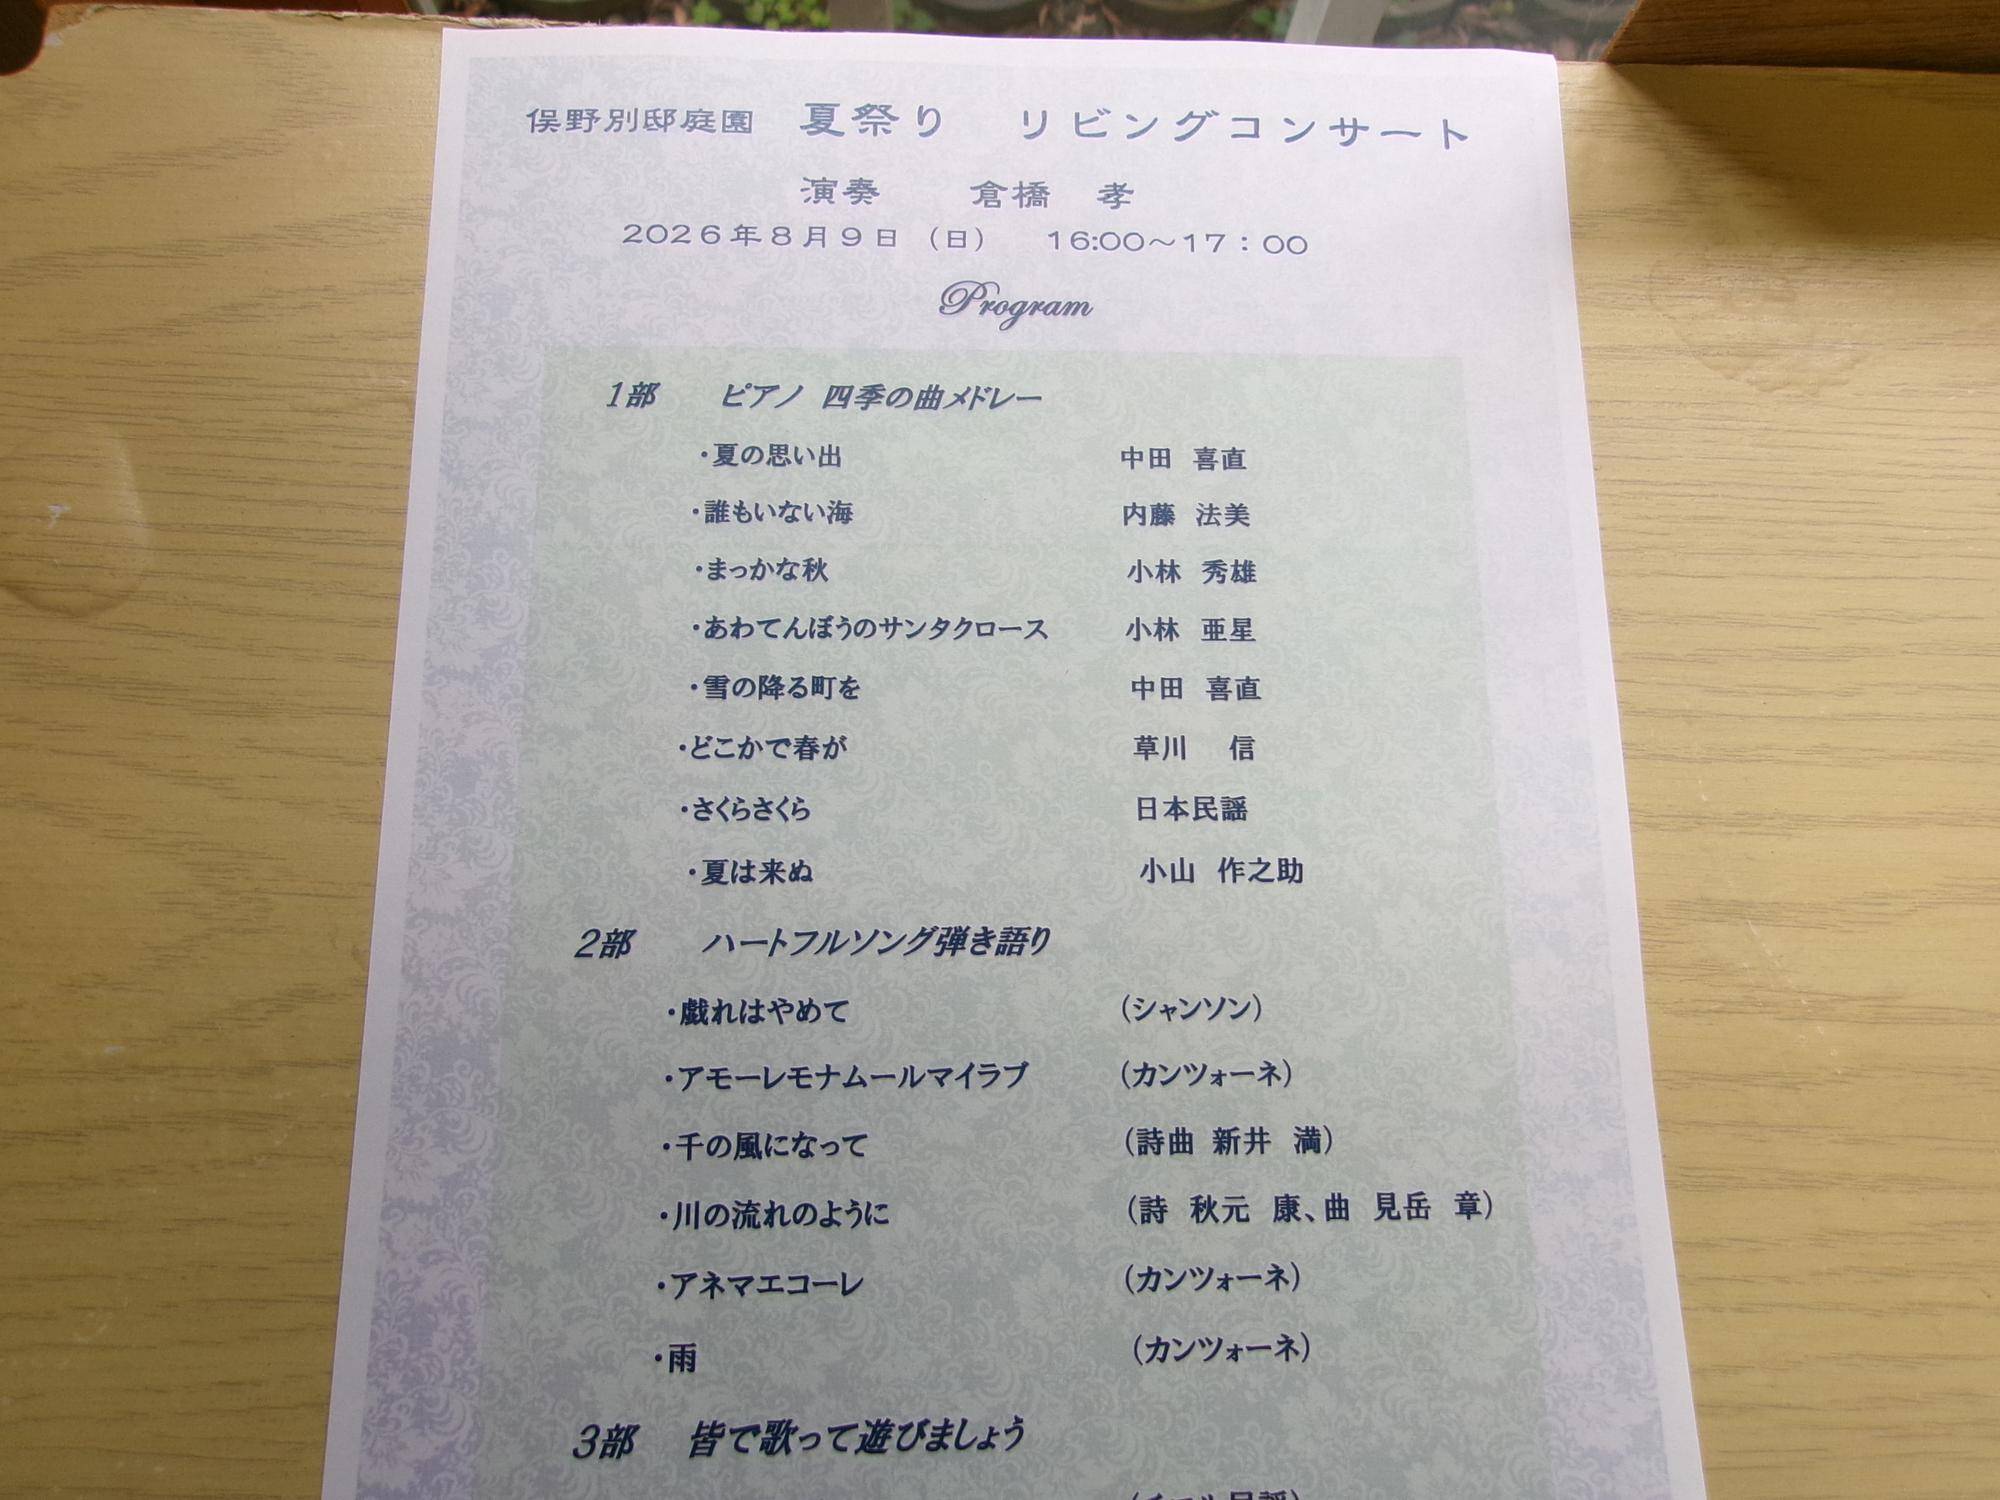 俣野別邸庭園 夏祭り リビングコンサート
演奏 倉橋 孝
2026年8月9日（日） 16:00～17：00
Program
1部 ピアノ 四季の曲メドレー
・夏の思い出 中田 喜直
・誰もいない海 内藤 法美
・まっかな秋 小林 秀雄
・あわてんぼうのサンタクロース 小林 亜星
・雪の降る町を 中田 喜直
・どこかで春が 草川 信
・さくらさくら 日本民謡
・夏は来ぬ 小山 作之助
2部 ハートフルソング弾き語り
・戯れはやめて （シャンソン）
・アモーレモナムールマイラブ （カンツォーネ）
・千の風になって （詩曲 新井 満）
・川の流れのように （詩 秋元 康、曲 見岳 章）
・アネマエコーレ （カンツォーネ）
・雨 （カンツォーネ）
3部 皆で歌って遊びましょう